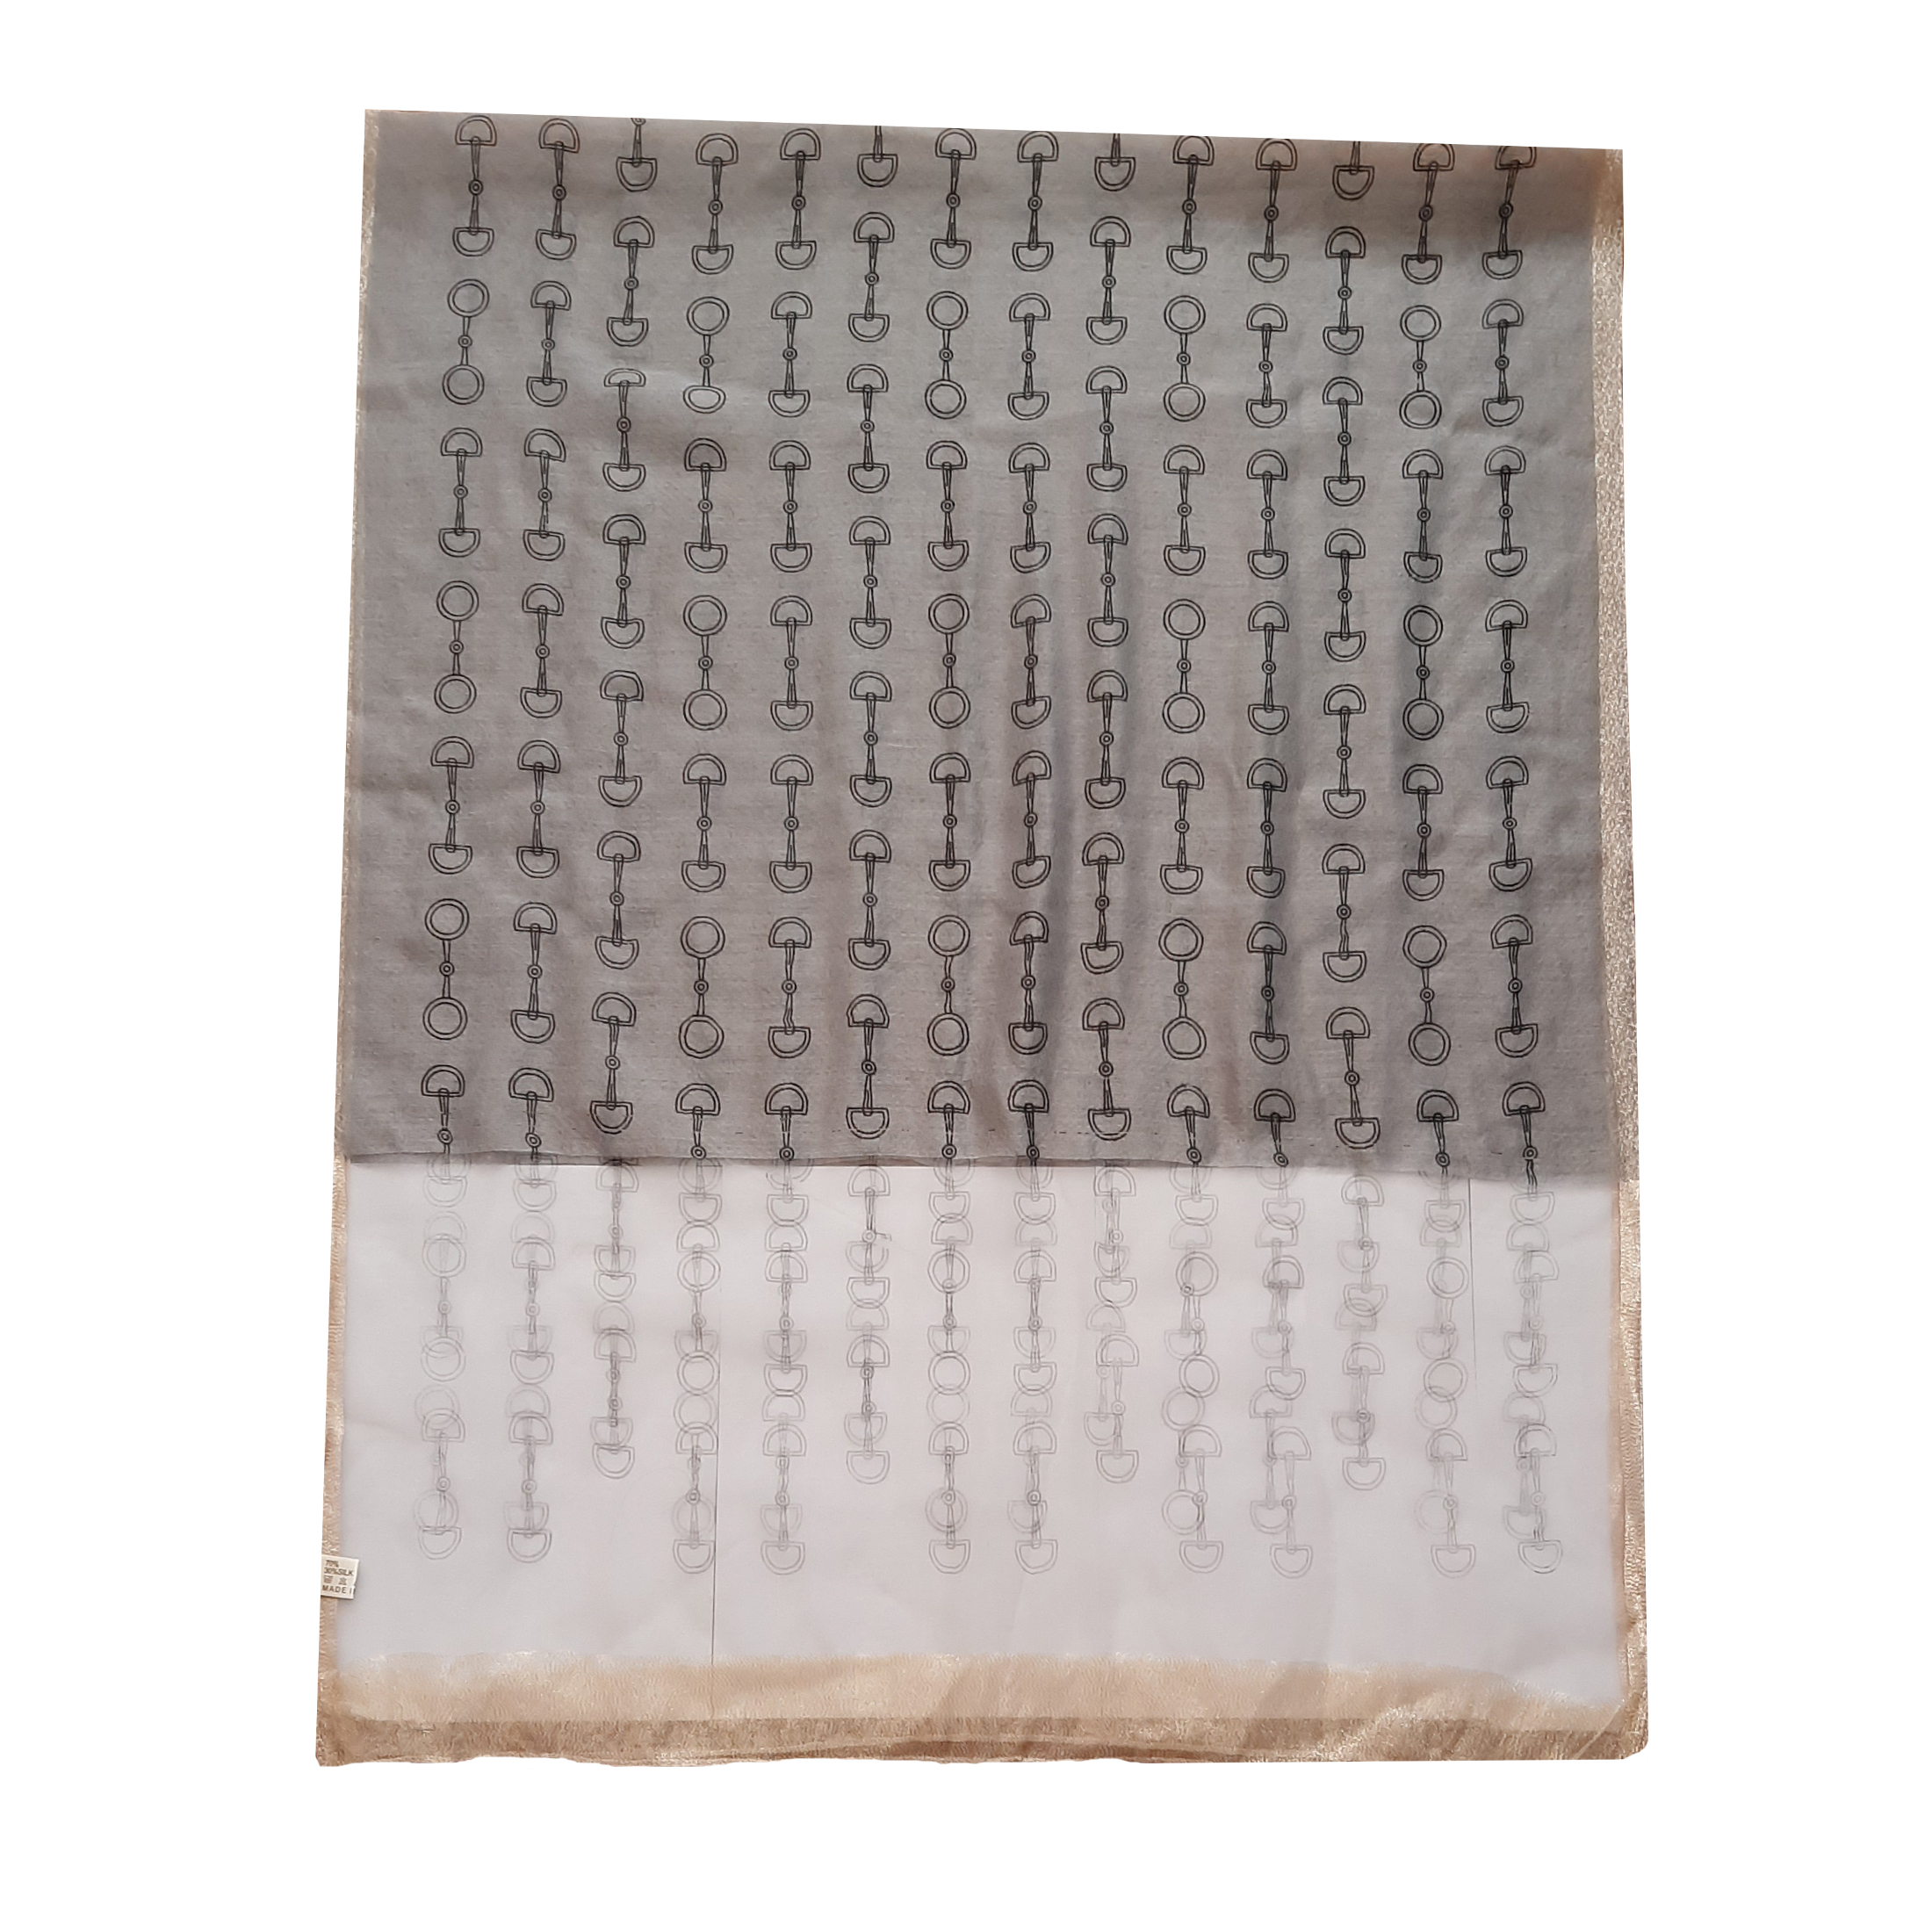 70%
30%SILK
MADE I